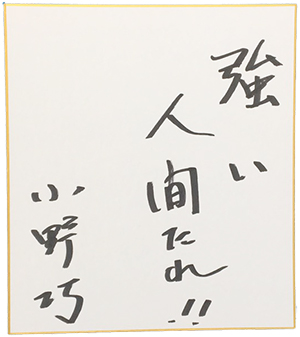 強い
人間たれ!!
小野巧